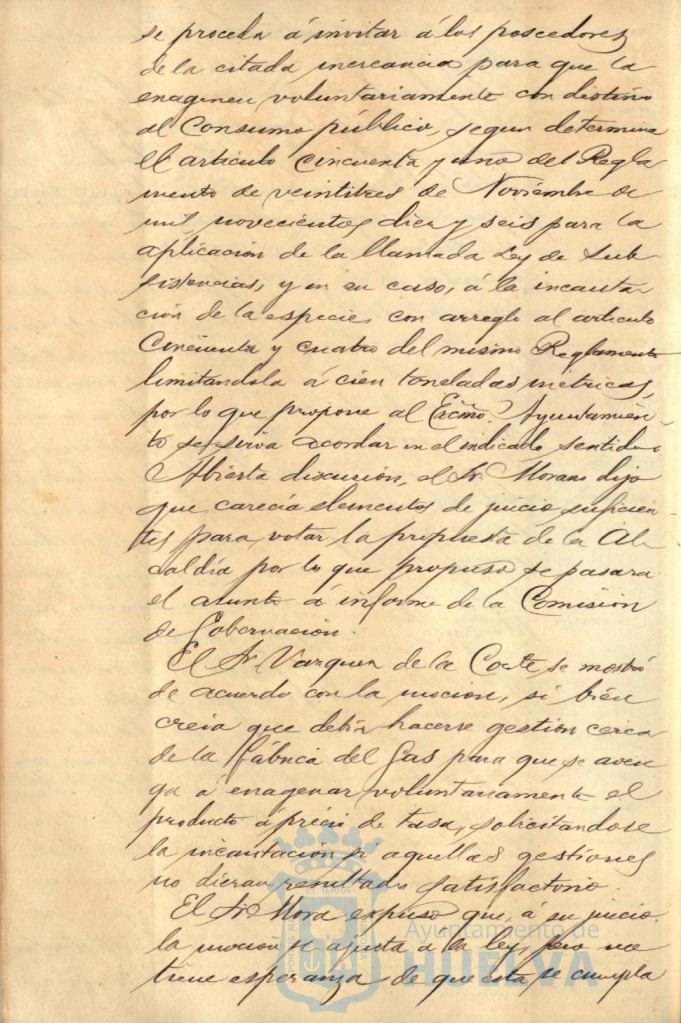 se proceda á invitar á los poseedores
de la citada mercancia para que la
enagenen voluntariamente con distino
al Consumo público, segun determina
el articulo cincuenta y uno del Regla
mento de veintitres de Noviembre de
mil novecientos diez y seis para la
aplicación de la llamada Ley de Sub-
sistencias, y en su caso, á la incauta-
ción de la especie, con arreglo al articulo
Cincuenta y cuatro del mismo Reglamento
limitandola á cien toneladas métricas,
por lo que propone al Excmo. Ayuntamien-
to se sirva acordar en el indicado sentido.
Abierta discusión, el Sr. Morano dijo
que carecía elementos de juicio suficien-
tes para votar la propuesta de la Al-
caldía por lo que propuso se pasara
el asunto á informe de la Comisión
de Gobernación.
El Sr. Vazquez de la Corte, se mostró
de acuerdo con la mocion, si bien
creia que debia hacerse gestion cerca
de la Fábrica del Gas para que se aven
ga á enagenar voluntariamente el
producto á precio de tasa, solicitandose
la incautación si aquellas gestiones
no dieran resultado satisfactorio.
El Sr. Mora expuso que, á su juicio,
la mocion se ajusta á la ley, pero no
tiene esperanza de que esta se cumpla
Ayuntamiento de
HUELVA